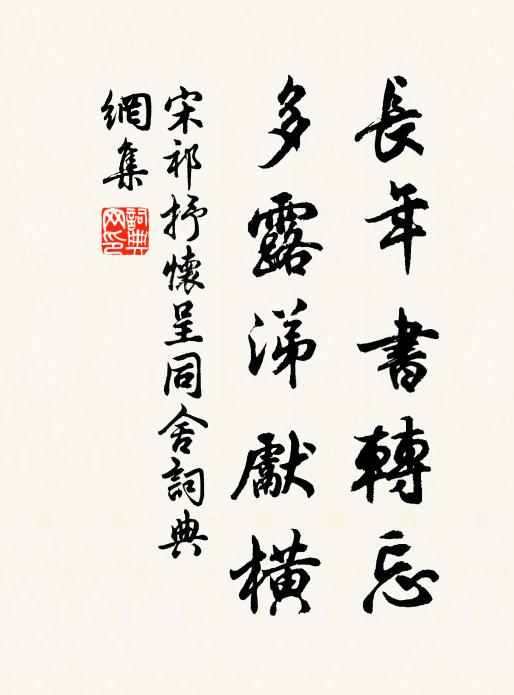 長年書轉忘
多露涕獻橫
宋祁抒懷呈同舍詞典
網集
詞典網印